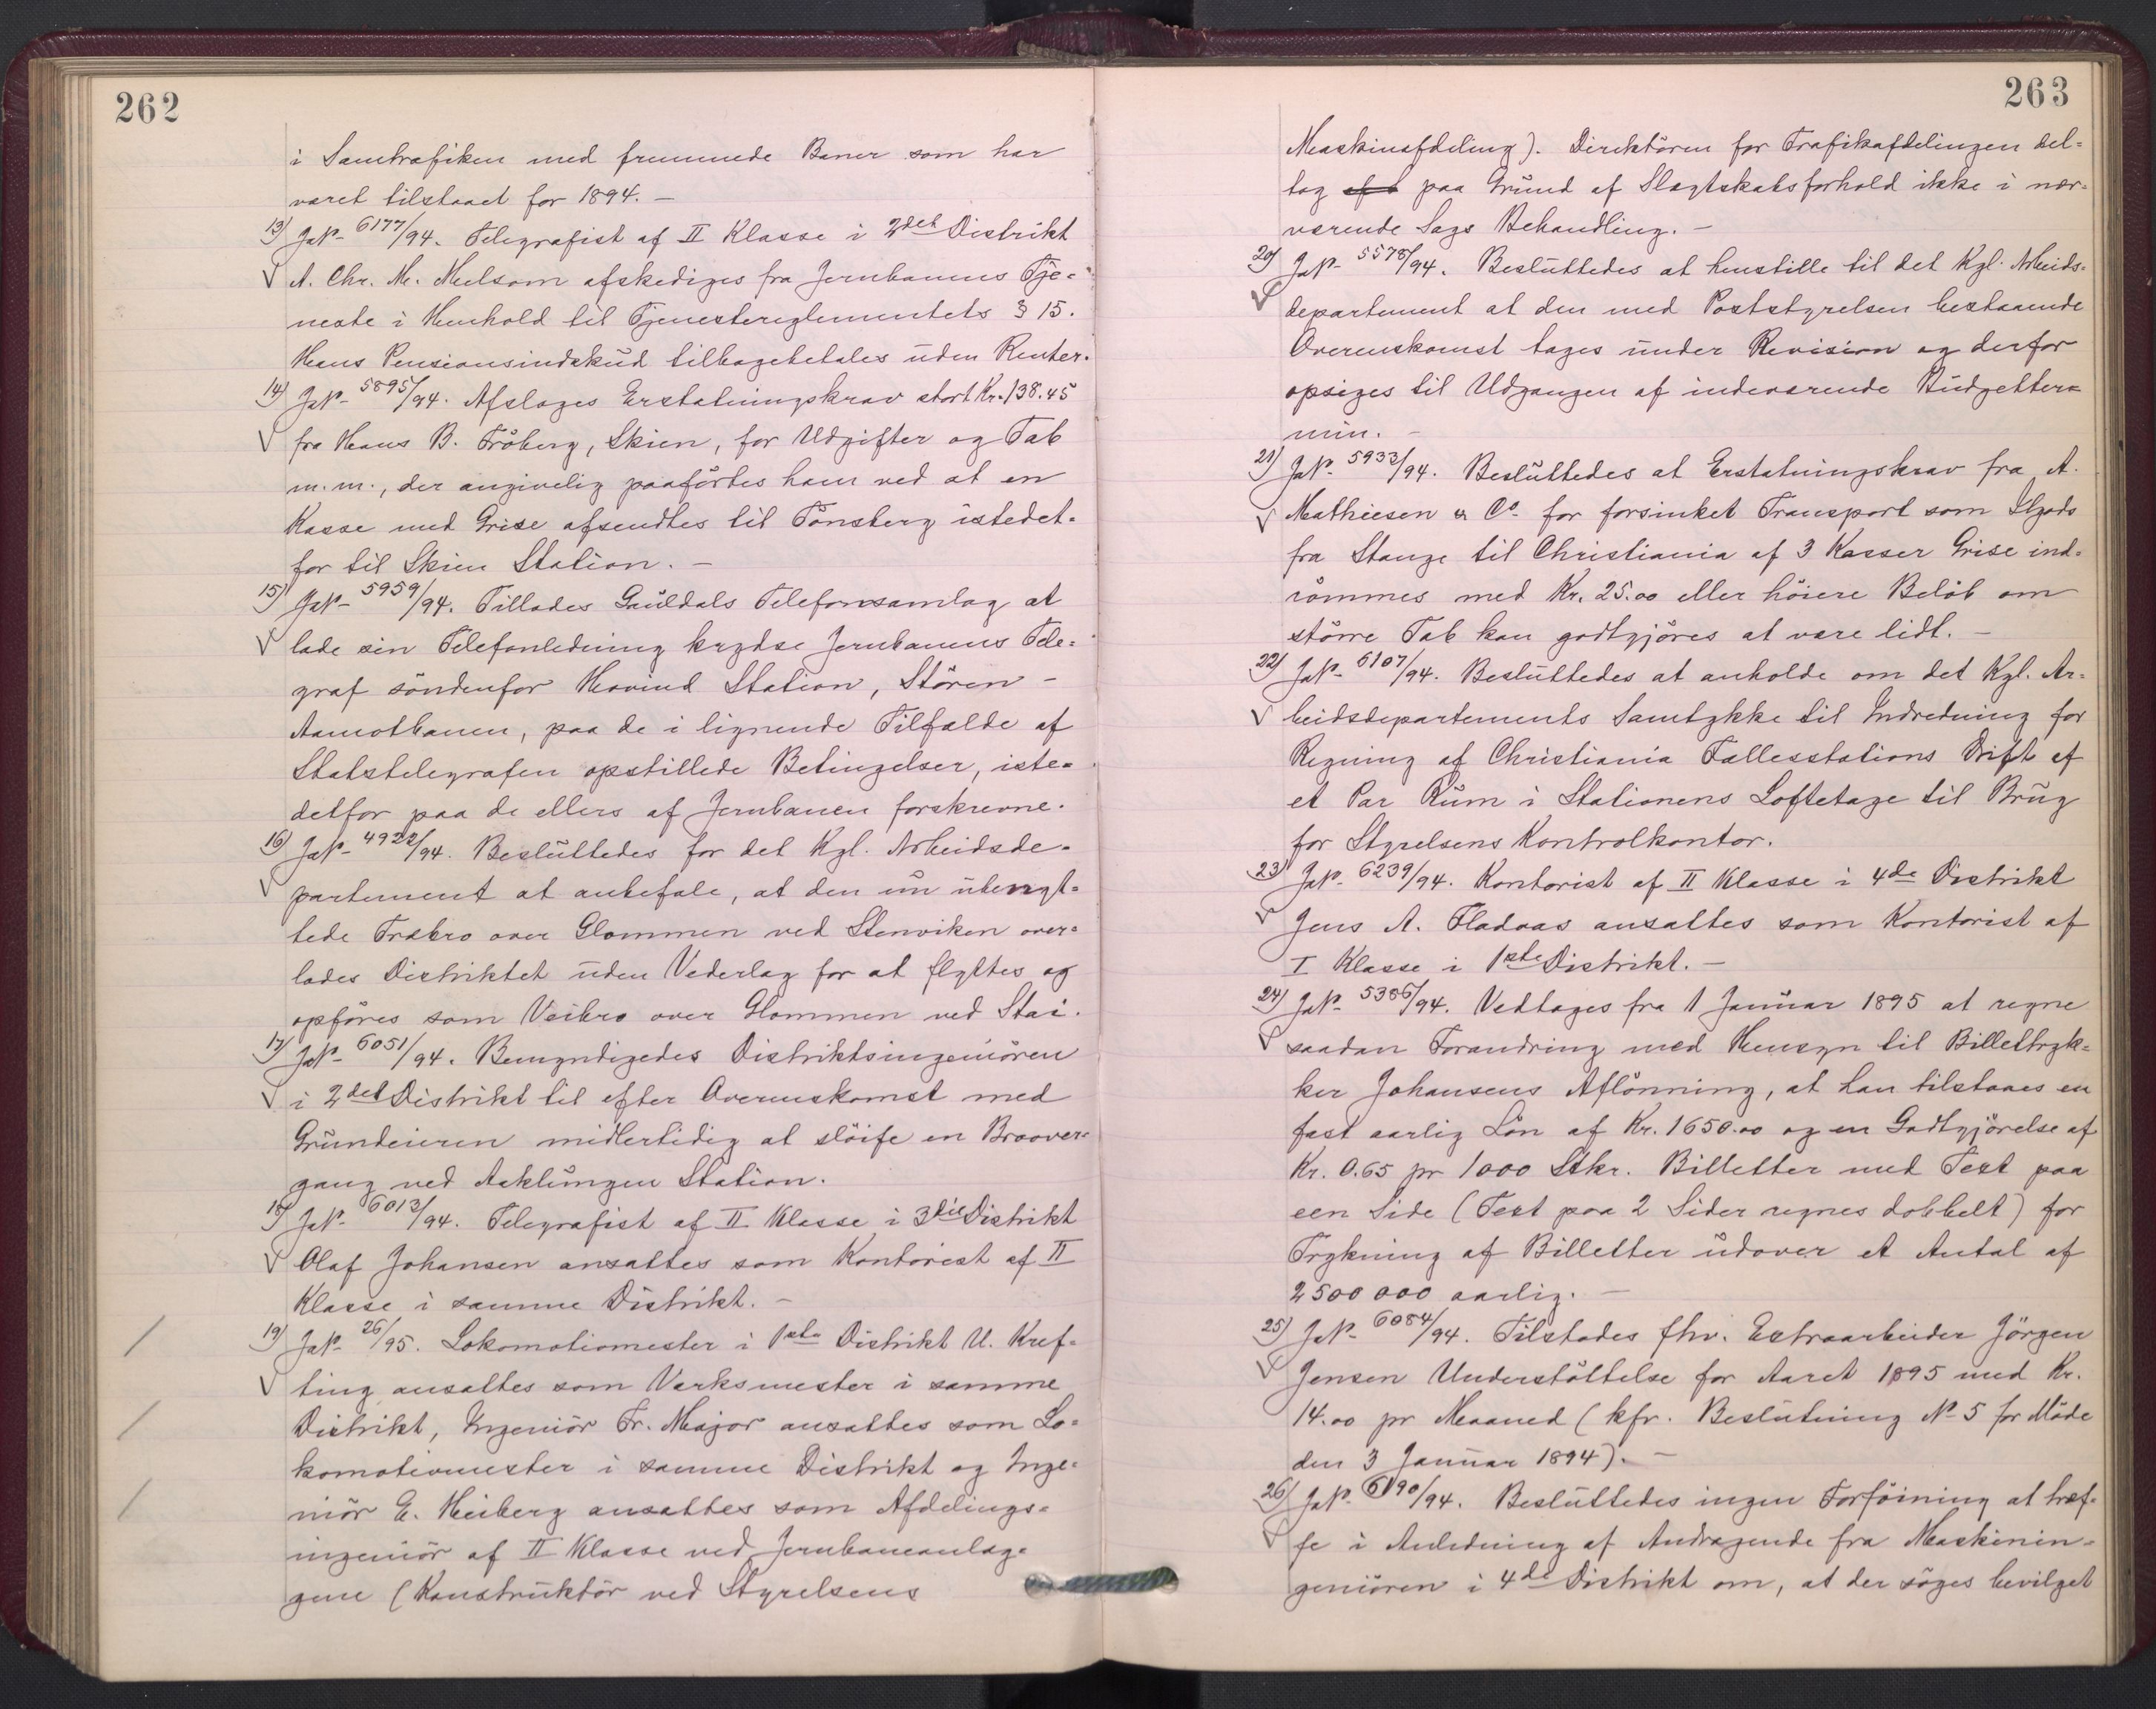 262
i Samtrafiken med fremmede Baner som har
været tilstaaet for 1894. —
13) JNo 6177/94. Telegrafist af II Klasse i 2det Distrikt
A. Chr. M. Melsom afskediges fra Jernbanens Tje=
neste i Henhold til Tjenestereglementets § 15.
Hans Pensionsindskud tilbagebetales uden Renter.
14) JNo 5895/94. Afslages Erstatningskrav stort Kr. 138.45
fra Hans B. Fröberg, Skien, for Udgifter og Tab
m.m., der angivelig paaförtes ham ved at en
Kasse med Grise afsendtes til Tönsberg istedet=
for til Skien Station. —
15) JNo 5959/94. Tillades Gauldals Telefonsamlag at
lade sin Telefonledning krydse Jernbanens Tele=
graf söndenfor Hovind Station, Stören —
Aamotbanen, paa de i lignende Tilfælde af
Statstelegrafen opstillede Betingelser, iste=
detfor paa de ellers af Jernbanen forskrevne.
16) JNo 4922/94. Besluttedes for det Kgl. Arbeidsde=
partement at anbefale, at den nu ubenyt=
tede Træbro over Glommen ved Stenviken over=
lades Distriktet uden Vederlag for at flyttes og
opföres som Veibro over Glommen ved Stai.
17) JNo 6051/94. Bemyndigedes Distriktsingeniören
i 2det Distrikt til efter Overenskomst med
Grundeieren midlertidig at slöife en Broover=
gang ved Aaklungen Station.
18) JNo 6013/94. Telegrafist af II Klasse i 3die Distrikt
Olaf Johansen ansattes som Kontorist af II
Klasse i samme Distrikt. —
19) JNo 26/95. Lokomotivmester i 1ste Distrikt U. Kref=
ting ansattes som Værksmester i samme
Distrikt, Ingeniör Fr. Major ansattes som Lo=
komotivmester i samme Distrikt og Inge=
niör E. Heiberg ansattes som Afdelings=
ingeniör af II Klasse ved Jernbaneanlæg=
gene (Konstruktör ved Styrelsens
263
Maskinafdeling). Direktören for Trafikafdelingen del=
tog paa Grund af Slægtskabsforhold ikke i nær=
værende Sags Behandling. —
20) JNo 5578/94. Besluttedes at henstille til det Kgl. Arbeids=
departement at den med Poststyrelsen bestaaende
Overenskomst tages under Revision og derfor
opsiges til Udgangen af indeværende Budgetter=
min. —
21) JNo 5933/94. Besluttedes at Erstatningskrav fra A.
Mathiesen & Co for forsinket Transport som Ilgods
fra Stange til Christiania af 3 Kasser Grise ind=
römmes med Kr. 25.00 eller höiere Belöb om
större Tab kan godtgjöres at være lidt. —
22) JNo 6107/94. Besluttedes at anholde om det Kgl. Ar=
beidsdepartements Samtykke til Indredning for
Regning af Christiania Fællesstations Drift af
et Par Rum i Stationens Loftetage til Brug
for Styrelsens Kontrolkontor.
23) JNo 6239/94. Kontorist af II Klasse i 4de Distrikt
Jens A. Fladaas ansattes som Kontorist af
I Klasse i 1ste Distrikt. —
24) JNo 5386/94. Vedtages fra 1 Januar 1895 at regne
saadan Forandring med Hensyn til Billettryk=
ker Johansens Aflönning, at han tilstaaes en
fast aarlig Lön af Kr. 1650.00 og en Godtgjörelse af
Kr. 0.65 pr 1000 Stkr. Billetter med Text paa
een Side (Text paa 2 Sider regnes dobbelt) for
Trykning af Billetter udover et Antal af
2500 000 aarlig. —
25) JNo 6084/94. Tilstodes fhv. Extraarbeider Jörgen
Jensen Understöttelse for Aaret 1895 med Kr.
14.00 pr Maaned (kfr. Beslutning No 5 for Möde
den 3 Januar 1894). —
26) JNo 6190/94. Besluttedes ingen Forföining at træf=
fe i Anledning af Andragende fra Maskinin=
geniören i 4de Distrikt om, at der söges bevilget